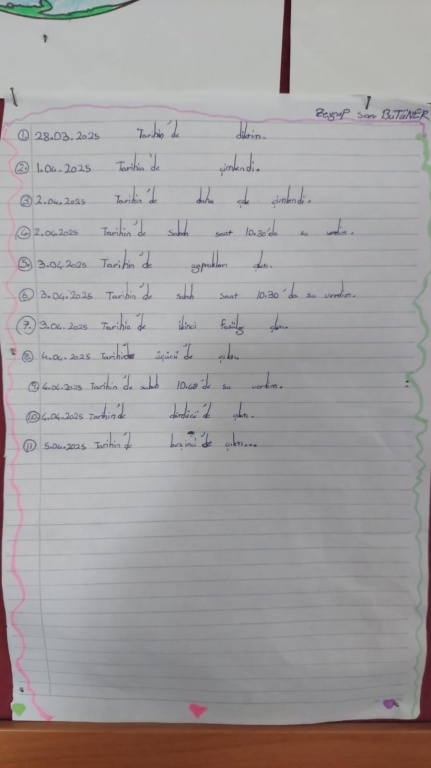 Zeynep Sare BUTÜNER
① 28.03.2025 Tarihin'de diktim.
② 1.04.2025 Tarihin'de çimlendi.
③ 2.04.2025 Tarihin'de daha çok çimlendi.
④ 2.04.2025 Tarihin'de sabah saat 10.30'da su verdim.
⑤ 3.04.2025 Tarihin'de yaprakları çıktı.
⑥ 3.04.2025 Tarihin'de sabah saat 10.30'da su verdim.
⑦ 3.04.2025 Tarihin'de ikinci fasülye çıktı.
⑧ 4.04.2025 Tarihide üçücü'de çıktı.
⑨ 4.04.2025 Tarihin'de sabah 10.48'de su verdim.
⑩ 4.04.2025 Tarihin'de dördücü'de çıktı.
⑪ 5.04.2025 Tarihin'de beşinci'de çıktı...